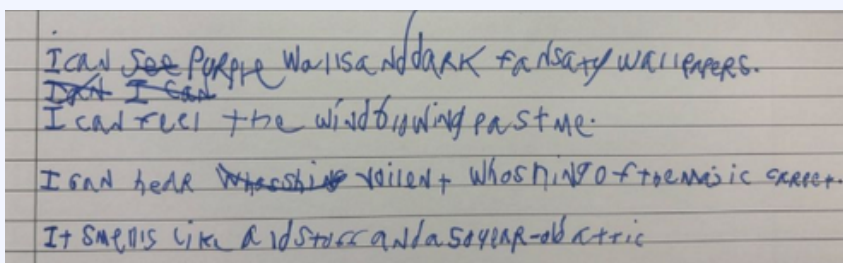 I can see Purple Walls and dark fansaty wallpapers.
I can I can
I can feel the wind blowing past me.
I can hear Whosshing voilent whoshing of the magic carpet.
It smells like old stuff and a 50 year-old attic